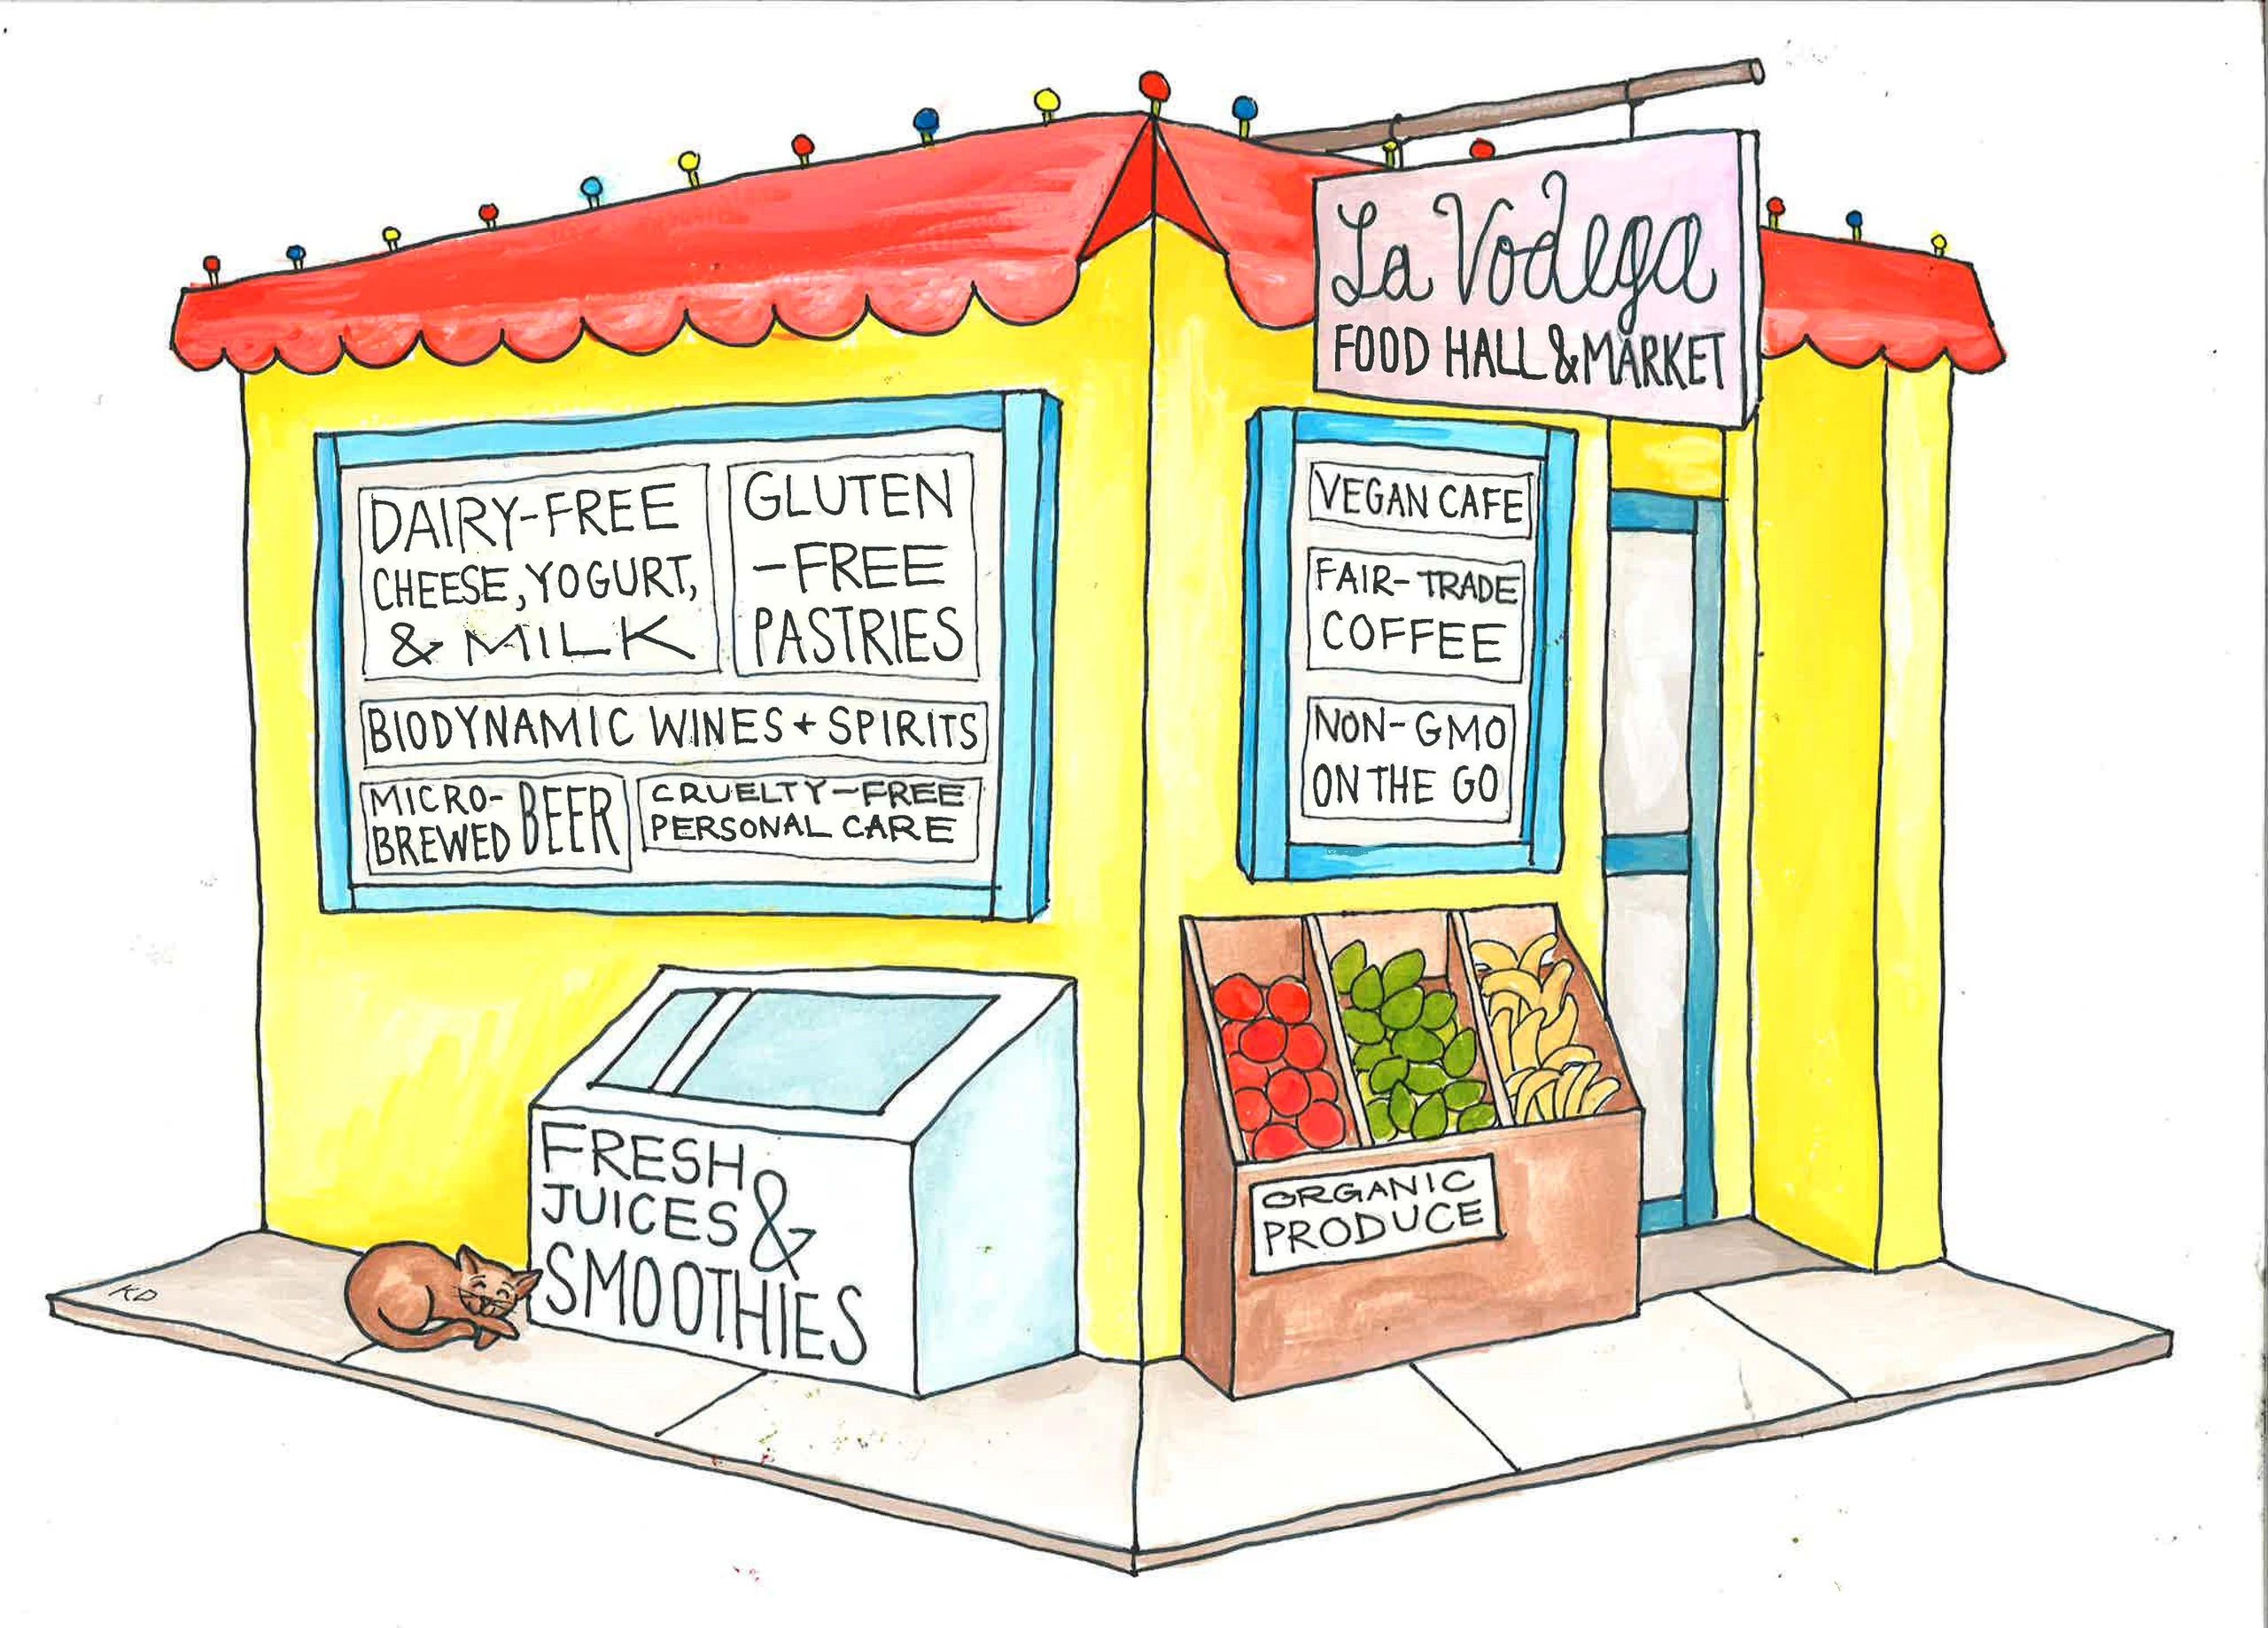 La Vodega
FOOD HALL & MARKET
DAIRY-FREE
CHEESE, YOGURT,
& MILK
GLUTEN
-FREE
PASTRIES
BIODYNAMIC WINES + SPIRITS
MICRO-
BREWED BEER
CRUELTY-FREE
PERSONAL CARE
VEGAN CAFE
FAIR-TRADE
COFFEE
NON-GMO
ON THE GO
FRESH
JUICES &
SMOOTHIES
ORGANIC
PRODUCE
KD